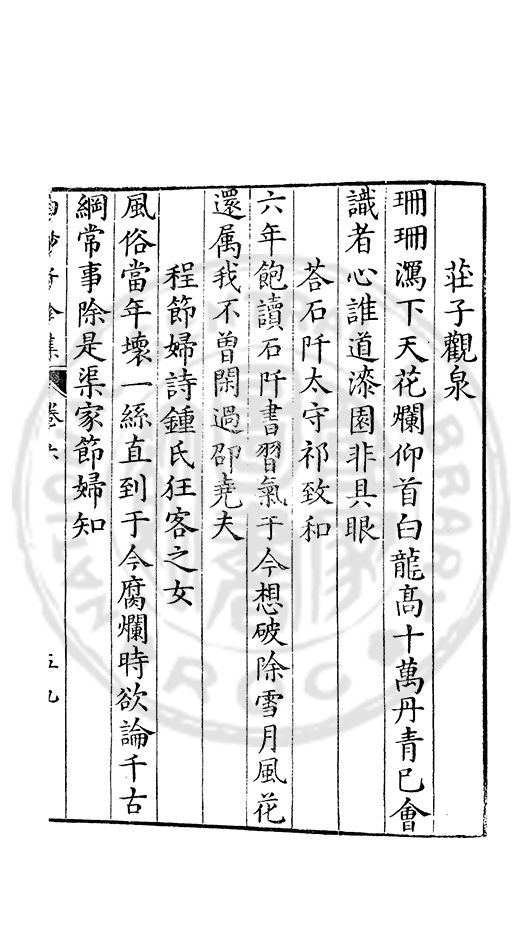 莊子觀泉
珊珊瀉下天花爛仰首白龍高十萬丹青已會
識者心誰道漆園非具眼
荅石阡太守祁致和
六年飽讀石阡書習氣于今想破除雪月風花
還属我不曾閑過邵堯夫
程節婦詩鍾氏狂客之女
風俗當年壞一絲直到于今腐爛時欲論千古
綱常事除是渠家節婦知
卷六
五九